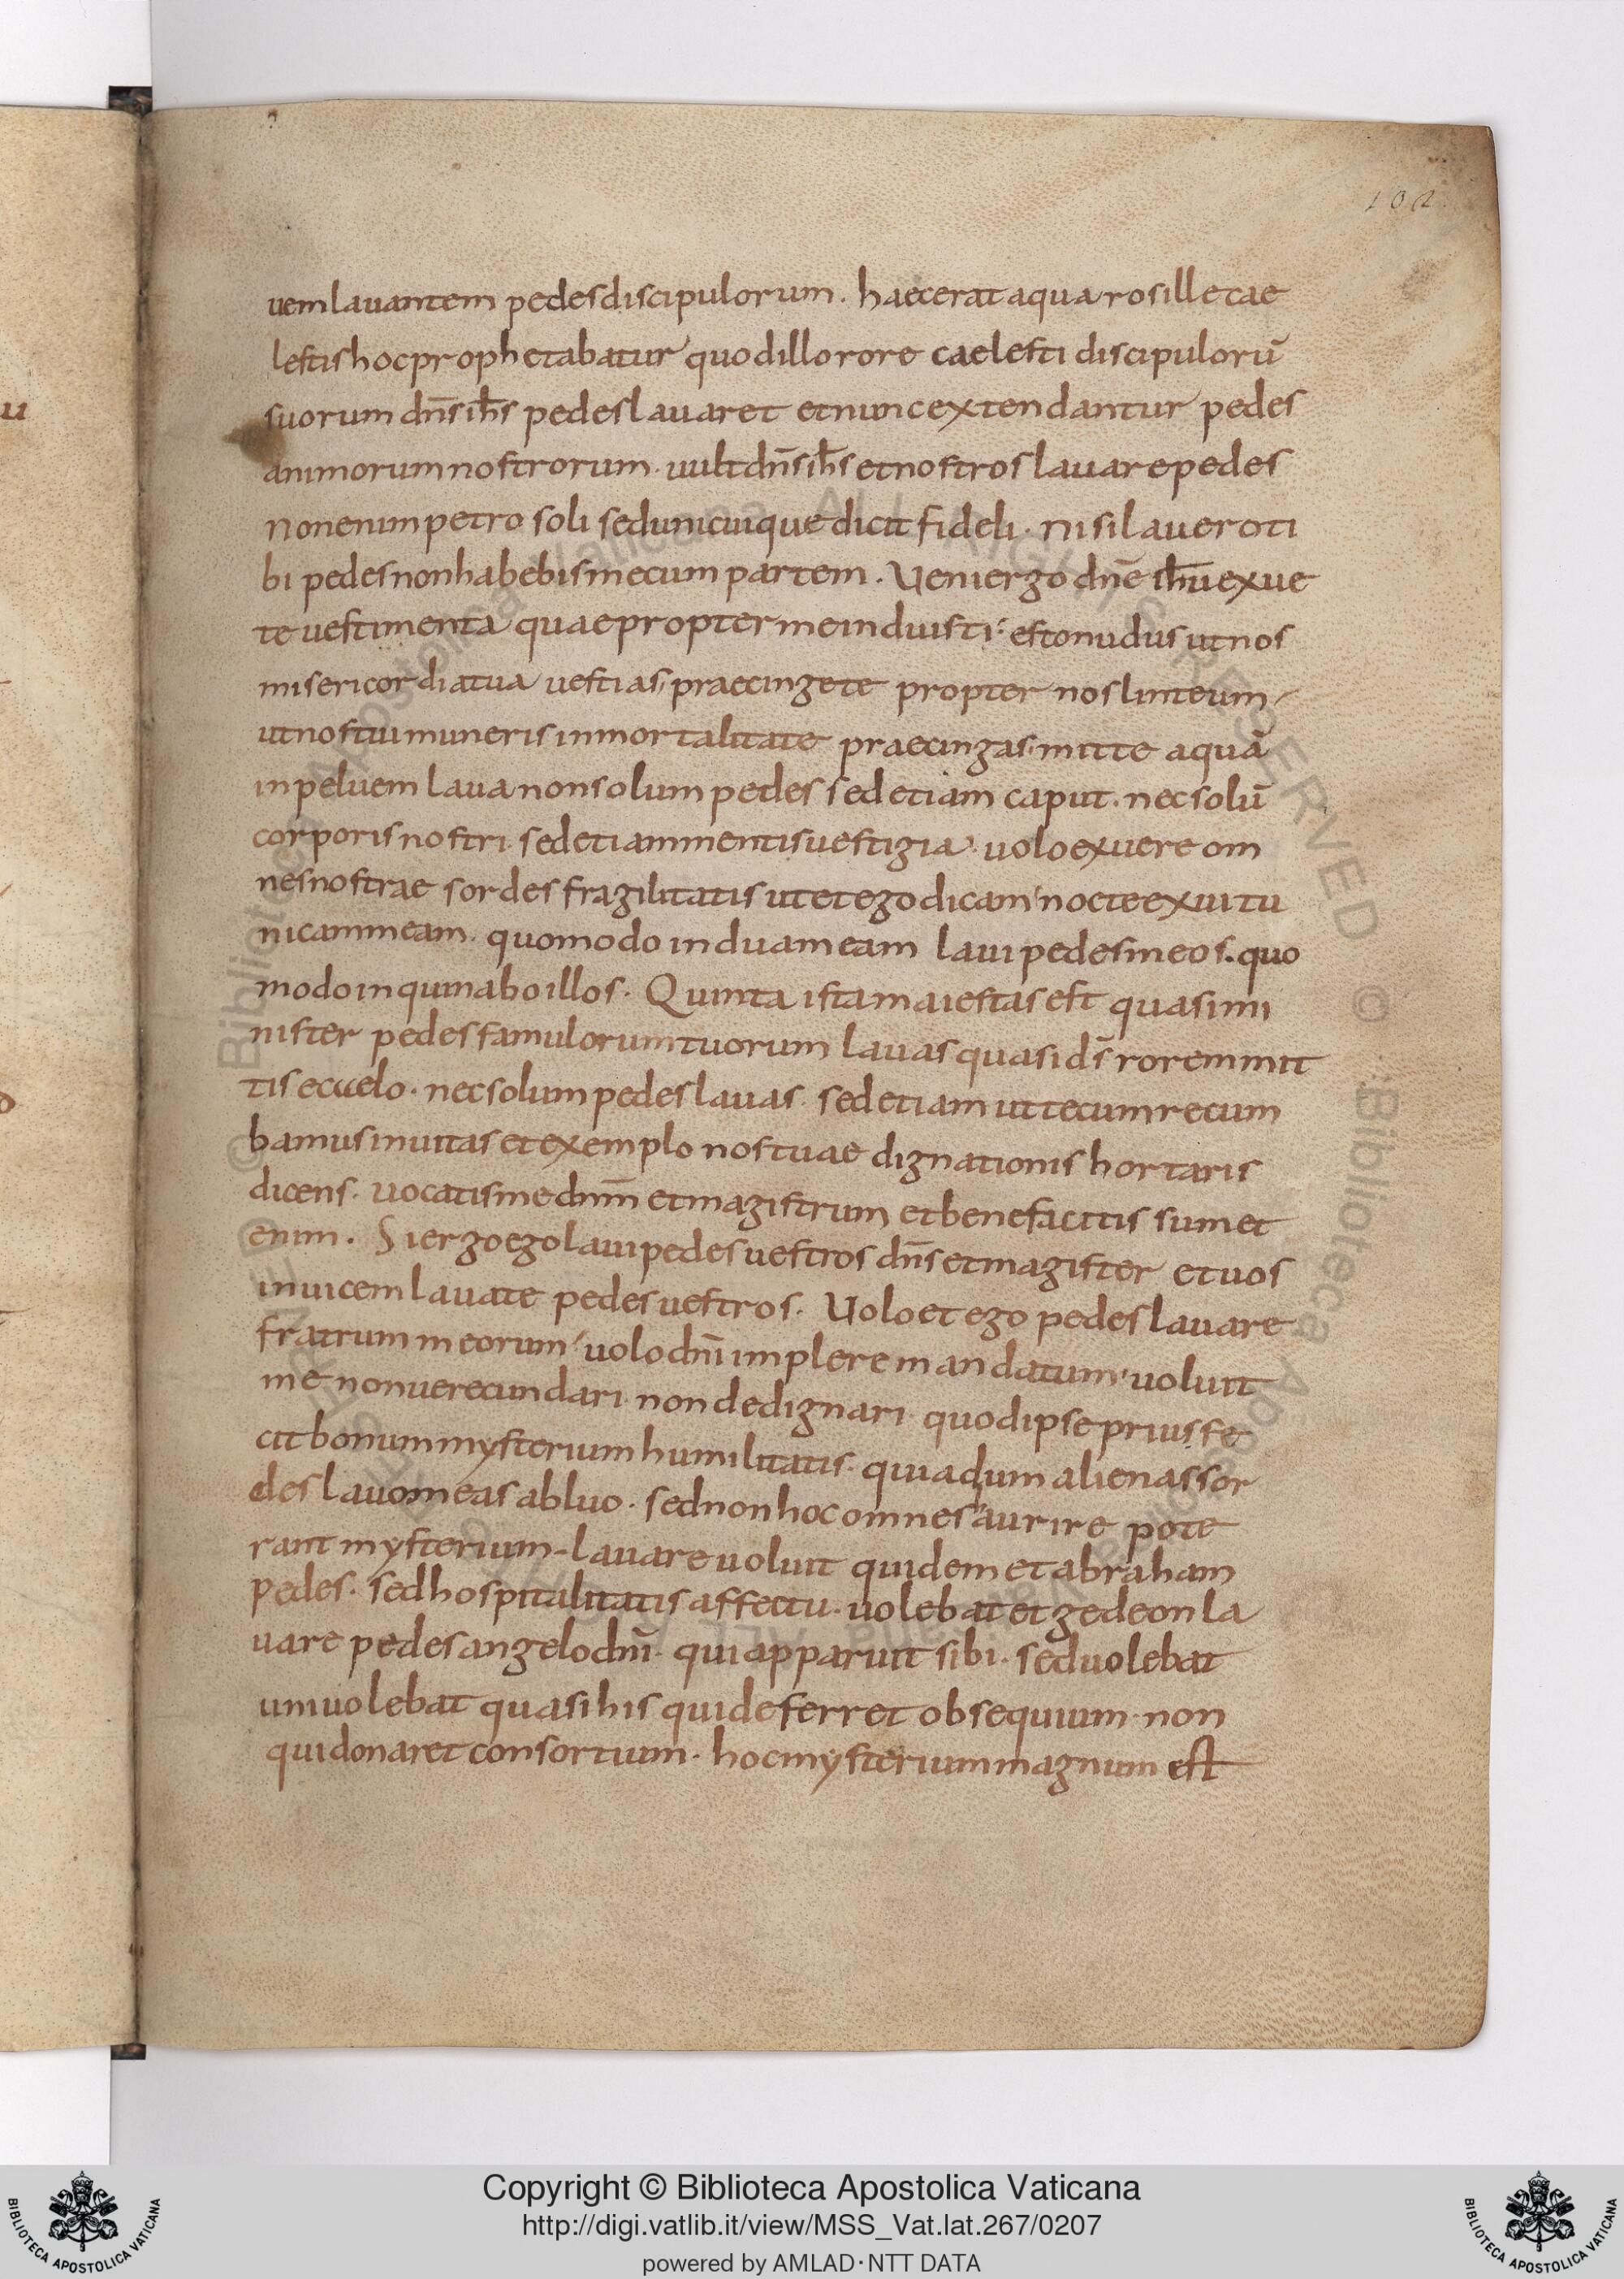 102
uem lauantem pedes discipulorum. haec erat aqua ros ille cae
lestis hoc prophetabatur quod illo rore caelesti discipulorū
suorum dn̄s ih̄s pedes lauaret et nunc extendantur pedes
animorum nostrorum. uult dn̄s ih̄s et nostros lauare pedes
Non enim petro soli sed unicuique dicit fideli. nisi lauero ti
bi pedes non habebis mecum partem. Ueni ergo dn̄e ih̄u exue
te uestimenta quae propter me induisti. esto nudus ut nos
misericordia tua uestias, praecinge te propter nos linteum,
ut nos tui muneris inmortalitate praecingas, mitte aquā
in peluem laua non solum pedes sed etiam caput. nec solū
corporis nostri. sed etiam mentis uestigia. uolo exuere om
nes nostrae sordes fragilitatis ut et ego dicam, nocte exui tu
nicam meam. quomodo induam eam laui pedes meos. quo
modo inquinabo illos. Quinta ista maiestas est quasi mi
nister pedes famulorum tuorum lauas quasi ds̄ rorem mit
tis e caelo. nec solum pedes lauas. sed etiam ut tecum recum
bamus inuitas et exemplo nos tuae dignationis hortaris
dicens. uocatis me dnm̄ et magistrum et bene facitis sum et
enim. Si ergo ego laui pedes uestros dn̄s et magister et uos
inuicem lauate pedes uestros. Uolo et ego pedes lauare
fratrum meorum, uolo dn̄i implere mandatum, uoluit
me non uerecundari. non dedignari quod ipse prius fe
cit bonum mysterium humilitatis. quia dum alienas sor
des lauo meas abluo. sed non hoc omnes haurire pote
rant mysterium. lauare uoluit quidem et abraham
pedes. sed hospitalitatis affectu. uolebat et gedeon la
uare pedes angelo dn̄i. qui apparuit sibi. sed uolebat
uni uolebat quasi his qui deferret obsequium. non
qui donaret consortium. hoc mysterium magnum est
Copyright © Biblioteca Apostolica Vaticana
http://digi.vatlib.it/view/MSS_Vat.lat.267/0207
powered by AMLAD·NTT DATA